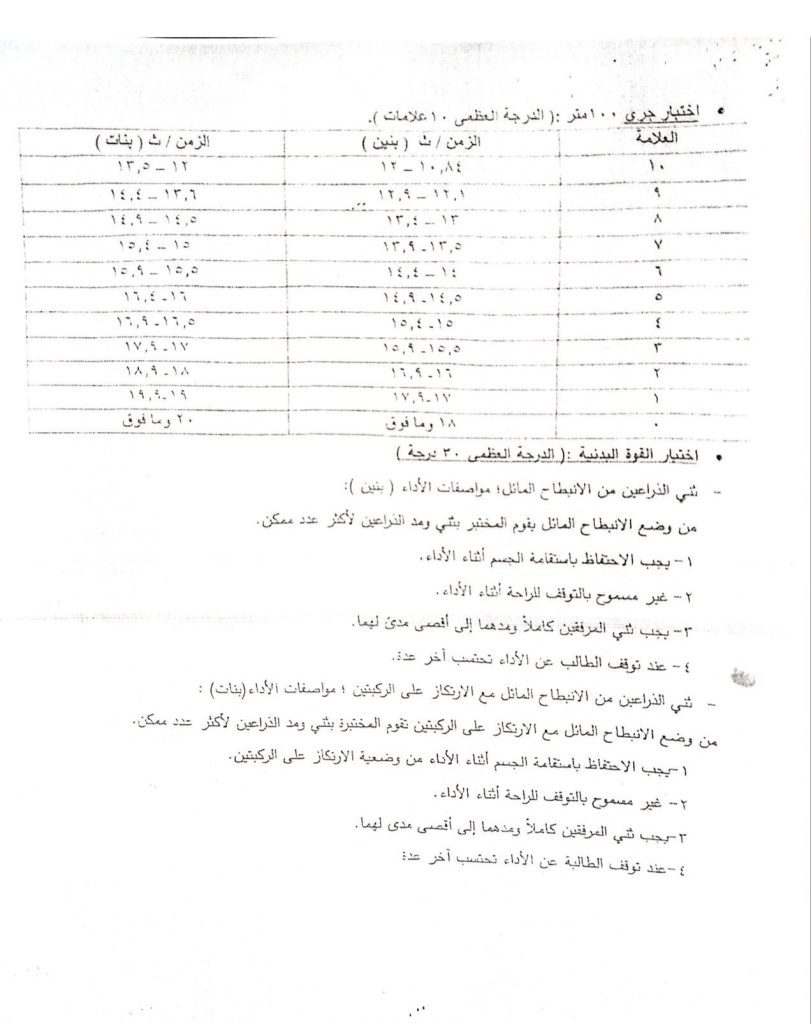 • اختبار جري ١٠٠متر :( الدرجة العظمى ١٠علامات ).
العلامة | الزمن / ث ( بنين ) | الزمن / ث ( بنات )
١٠ | ١٠,٨٤ – ١٢ | ١٢ – ١٣,٥
٩ | ١٢,١ – ١٢,٩ | ١٣,٦ – ١٤,٤
٨ | ١٣ – ١٣,٤ | ١٤,٥ – ١٤,٩
٧ | ١٣,٥- ١٣,٩ | ١٥ – ١٥,٤
٦ | ١٤ – ١٤,٤ | ١٥,٥ – ١٥,٩
٥ | ١٤,٥- ١٤,٩ | ١٦- ١٦,٤
٤ | ١٥- ١٥,٤ | ١٦,٥- ١٦,٩
٣ | ١٥,٥- ١٥,٩ | ١٧- ١٧,٩
٢ | ١٦- ١٦,٩ | ١٨- ١٨,٩
١ | ١٧- ١٧,٩ | ١٩- ١٩,٩
٠ | ١٨ وما فوق | ٢٠ وما فوق
• اختبار القوة البدنية :( الدرجة العظمى ٣٠ درجة )
- ثني الذراعين من الانبطاح المائل؛ مواصفات الأداء ( بنين ):
من وضع الانبطاح المائل يقوم المختبر بثني ومد الذراعين لأكثر عدد ممكن.
١- يجب الاحتفاظ باستقامة الجسم أثناء الأداء.
٢- غير مسموح بالتوقف للراحة أثناء الأداء.
٣- يجب ثني المرفقين كاملاً ومدهما إلى أقصى مدى لهما.
٤- عند توقف الطالب عن الأداء تحتسب آخر عدة.
- ثني الذراعين من الانبطاح المائل مع الارتكاز على الركبتين ؛ مواصفات الأداء(بنات) :
من وضع الانبطاح المائل مع الارتكاز على الركبتين تقوم المختبرة بثني ومد الذراعين لأكثر عدد ممكن.
١-يجب الاحتفاظ باستقامة الجسم أثناء الأداء من وضعية الارتكاز على الركبتين.
٢- غير مسموح بالتوقف للراحة أثناء الأداء.
٣-يجب ثني المرفقين كاملاً ومدهما إلى أقصى مدى لهما.
٤-عند توقف الطالبة عن الأداء تحتسب آخر عدة